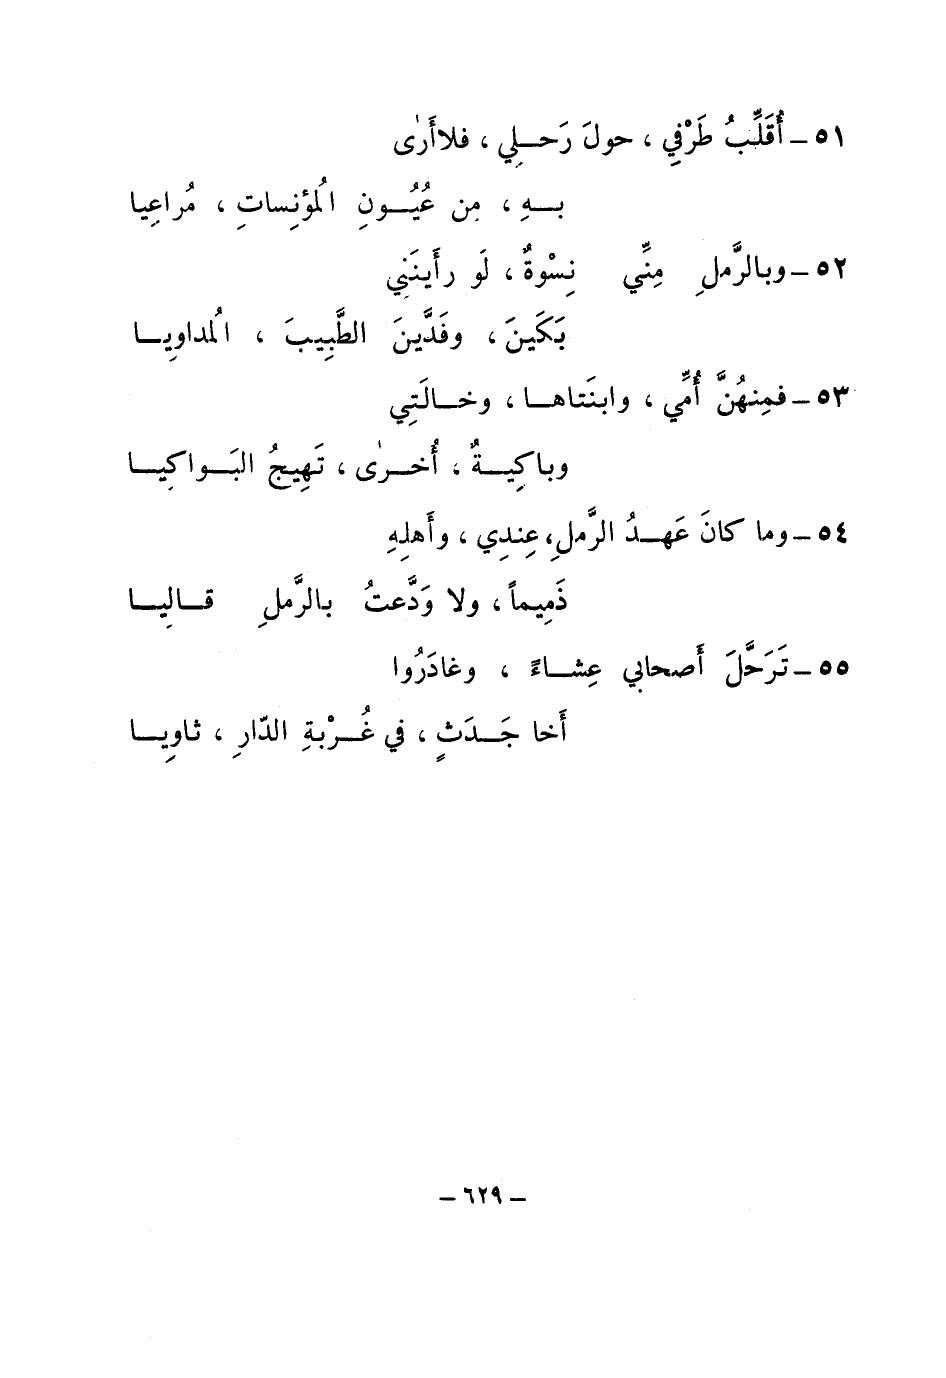 ٥١ - أُقَلِّبُ طَرْفِي ، حولَ رَحلِي ، فلا أَرٰى
بهِ ، مِن عُيُونِ المُؤنِساتِ ، مُراعِيا
٥٢ - وبالرَّملِ مِنِّي نِسْوةٌ ، لَو رأَينَنِي
بَكَينَ ، وفَدَّينَ الطَّبِيبَ ، المُداوِيا
٥٣ - فمِنهُنَّ أُمِّي ، وابنَتاها ، وخالَتِي
وباكِيةٌ ، أُخرٰى ، تَهِيجُ البَواكِيا
٥٤ - وما كانَ عَهدُ الرَّملِ، عِندِي ، وأَهلِهِ
ذَمِيماً ، ولا وَدَّعتُ بالرَّملِ قالِيا
٥٥ - تَرَحَّلَ أَصحابي عِشاءً ، وغادَرُوا
أَخا جَدَثٍ ، في غُرْبةِ الدّارِ ، ثاوِيا
- ٦٢٩ -